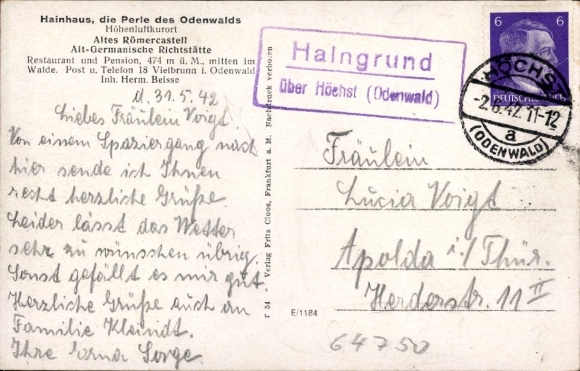 Hainhaus, die Perle des Odenwalds
Höhenluftkurort
Altes Römercastell
Alt-Germanische Richtstätte
Restaurant und Pension, 474 m ü. M., mitten im
Walde. Post u. Telefon 18 Vielbrunn i. Odenwald
Inh. Herm. Beisse
d. 31.5.42
Liebes Fräulein Voigt.
Von einem Spaziergang nach
hier sende ich Ihnen
recht herzliche Grüße.
Leider lässt das Wetter
sehr zu wünschen übrig.
Sonst gefällt es mir gut
Herzliche Grüße auch an
Familie Kleindt.
Ihre Erna Sorge.
F 54 * Verlag Fritz Cloos, Frankfurt a. M. Nachdruck verboten
Haingrund
über Höchst (Odenwald)
6 6
DEUTSCHES REICH
HÖCHST
-2.6.42.11-12
a
(ODENWALD)
Fräulein
Lucia Voigt
Apolda i./Thür.
Herderstr. 11 II
E/1184
64750